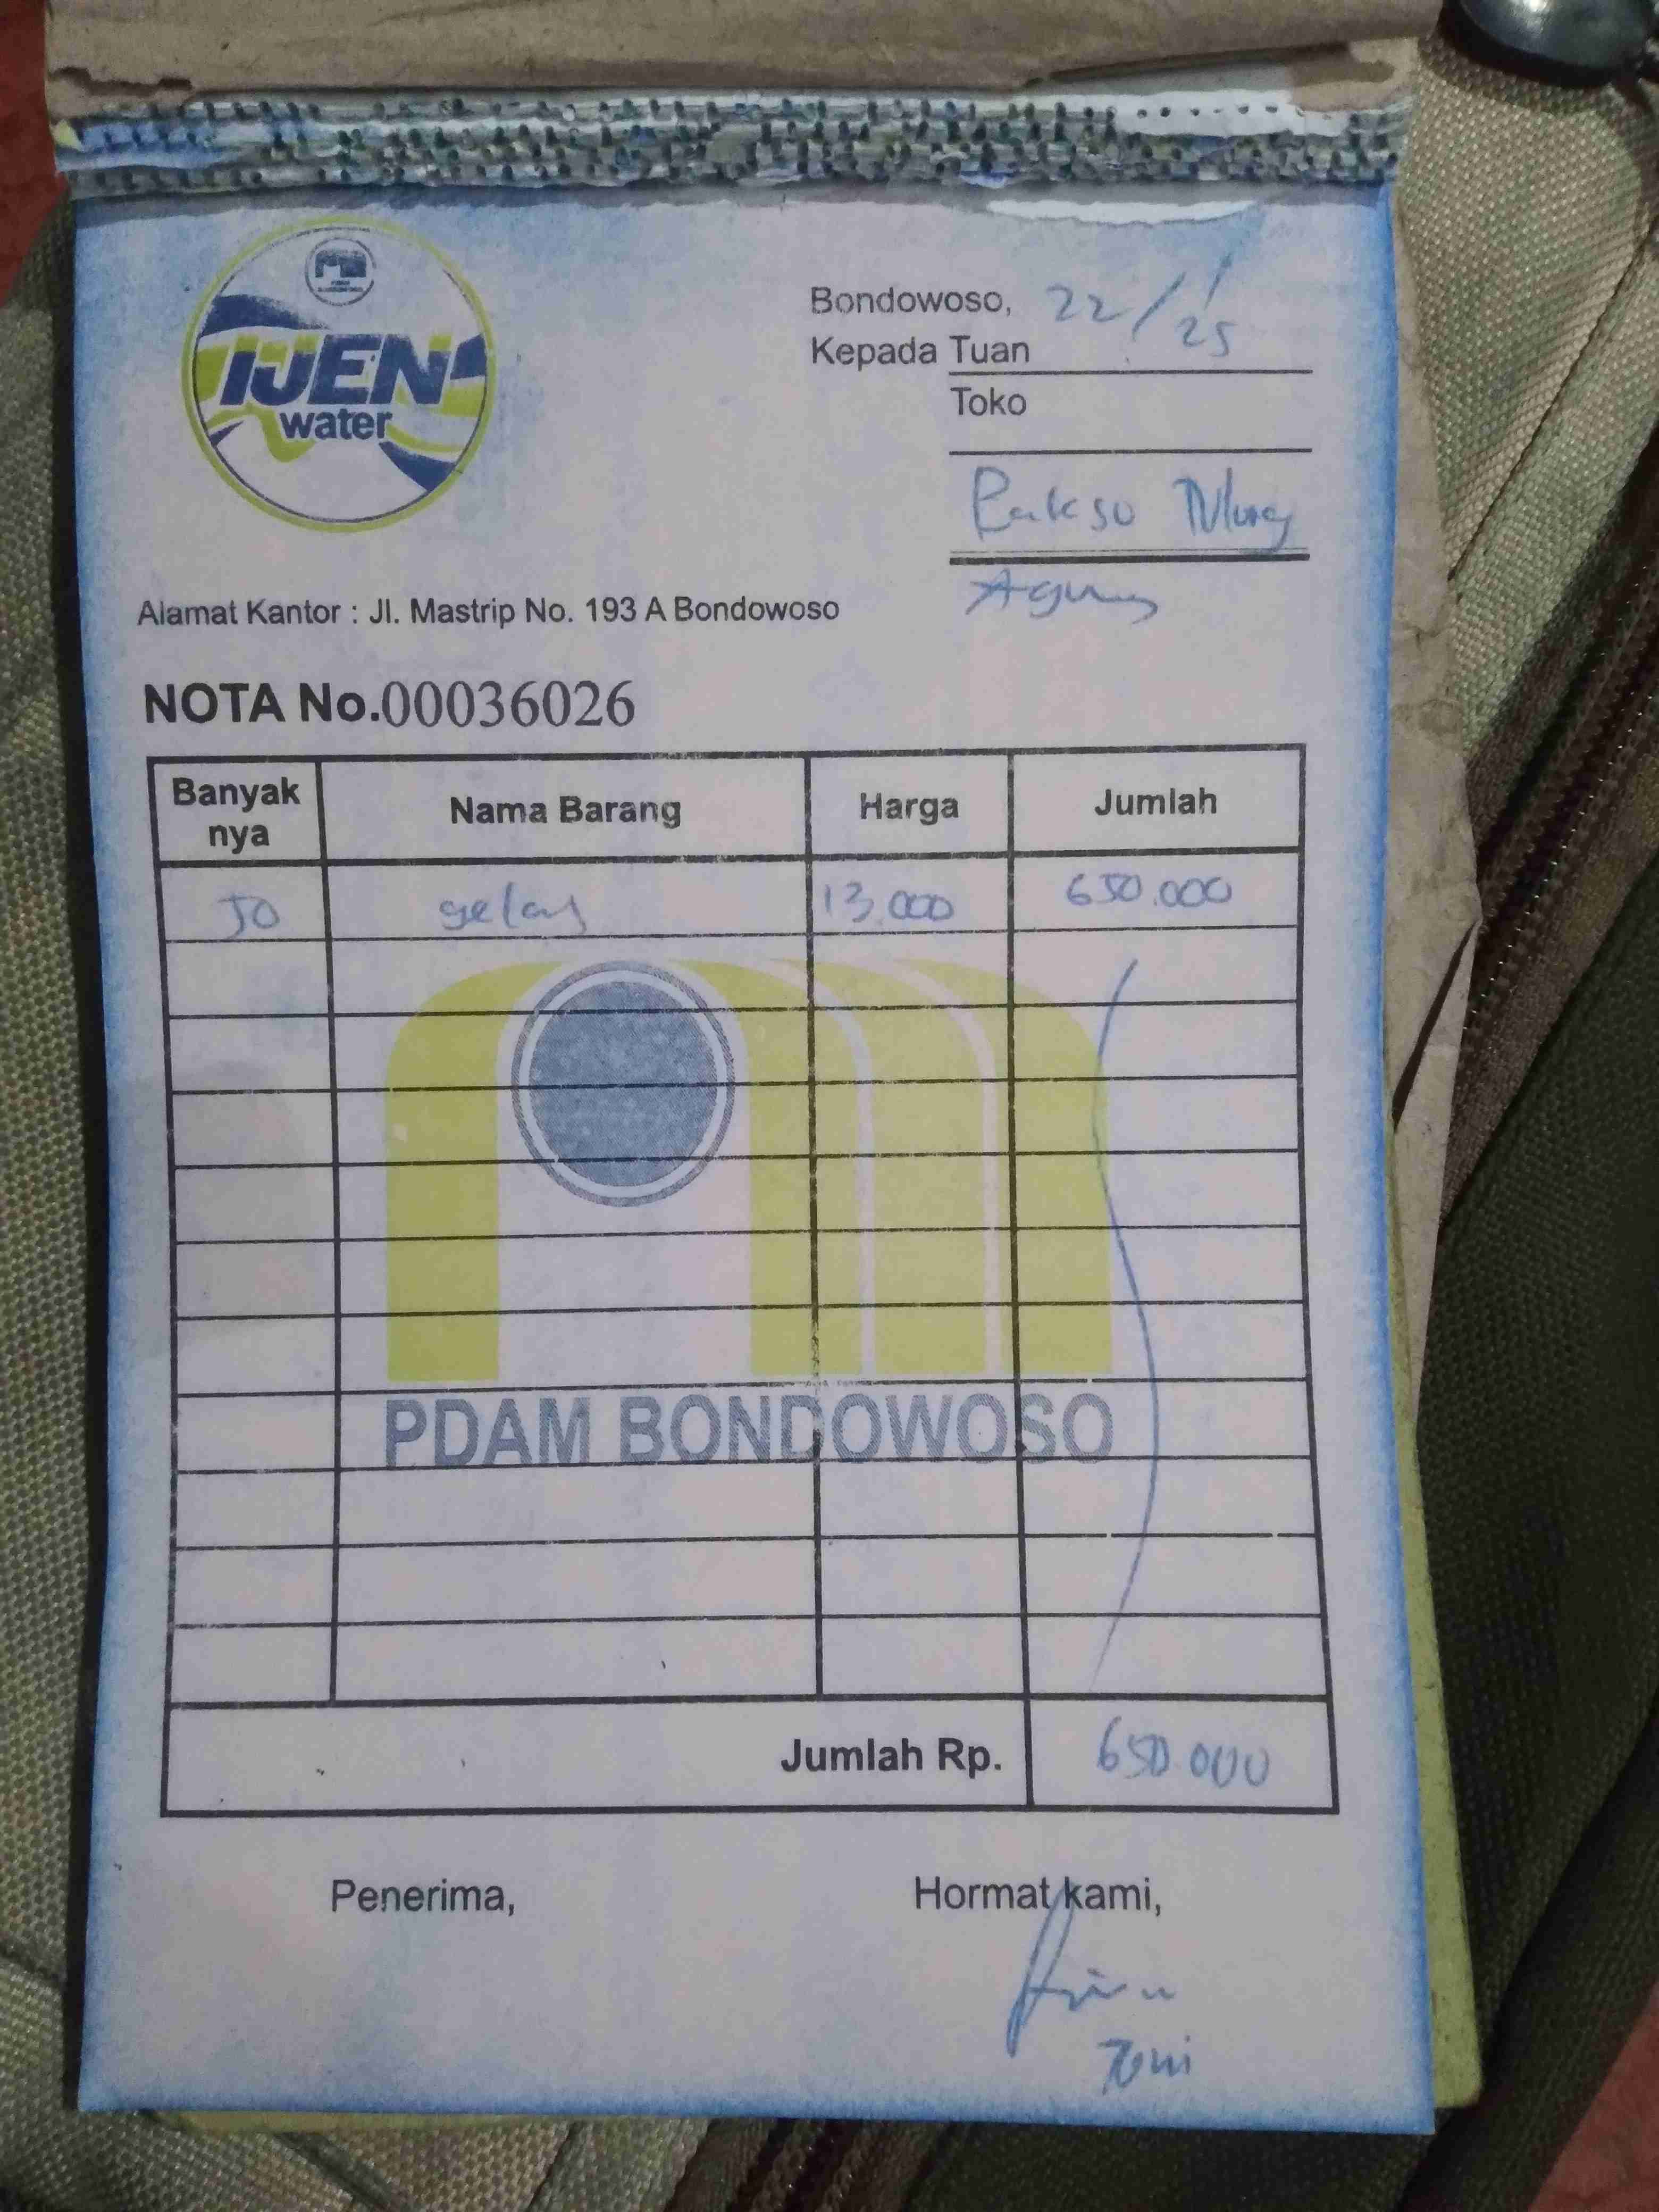 IJEN
water
Bondowoso, 22/1/25
Kepada Tuan
Toko
Bakso Tulung
Agung
Alamat Kantor : Jl. Mastrip No. 193 A Bondowoso
NOTA No.00036026
Banyak nya Nama Barang Harga Jumlah
50 gelas 13.000 650.000
PDAM BONDOWOSO
Jumlah Rp. 650.000
Penerima, Hormat kami,
Toni